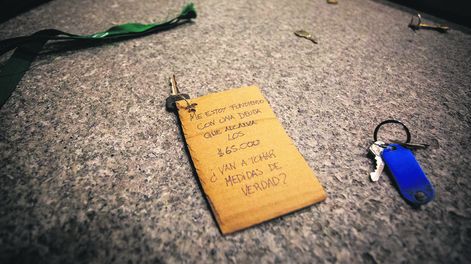 ME ESTOY FUNDIENDO
CON UNA DEUDA
QUE ALCANZA
LOS
$65.000
¿VAN A TOMAR
MEDIDAS DE
VERDAD?